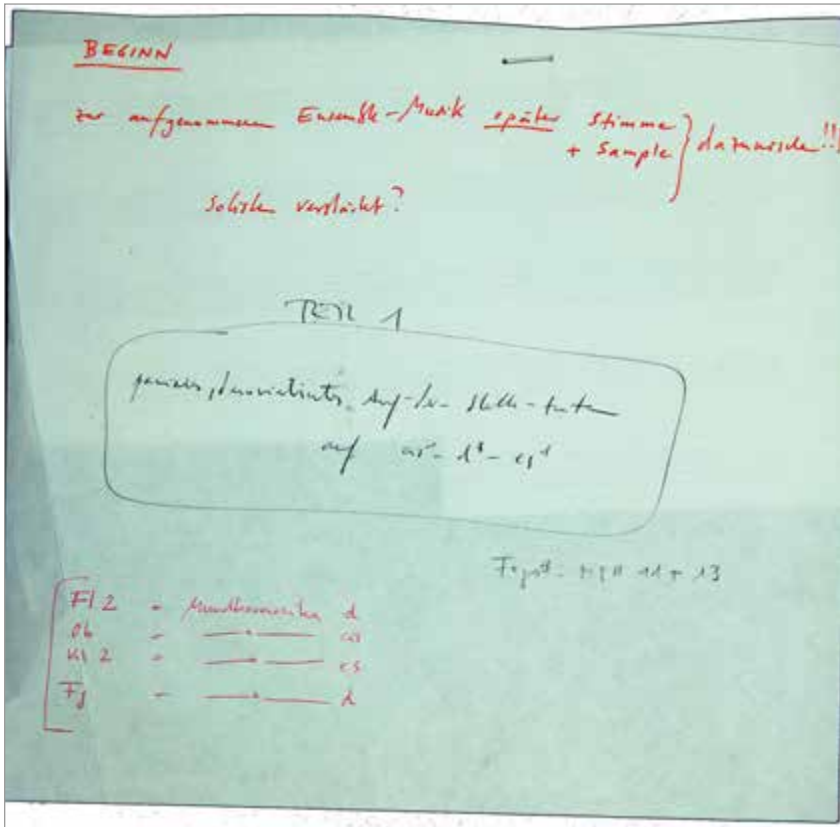 BEGINN
zur aufgenommenen Ensemble-Musik später Stimme
+ Sample } dazumische!!!
Solisten verstärkt?
TEIL 1
auf-der-Stelle-treten
auf cis¹-d¹-es¹
Fagott 11 + 13
Fl 2 - Mundharmonika d
Ob - —"— cis
Kl 2 - —"— es
Fg - —"— d